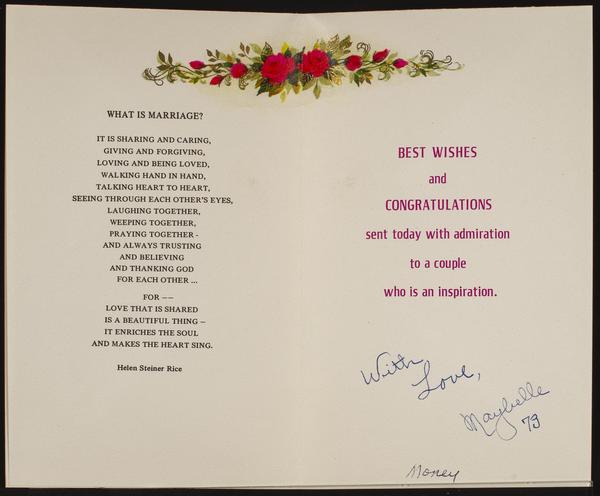 WHAT IS MARRIAGE?
IT IS SHARING AND CARING,
GIVING AND FORGIVING,
LOVING AND BEING LOVED,
WALKING HAND IN HAND,
TALKING HEART TO HEART,
SEEING THROUGH EACH OTHER'S EYES,
LAUGHING TOGETHER,
WEEPING TOGETHER,
PRAYING TOGETHER -
AND ALWAYS TRUSTING
AND BELIEVING
AND THANKING GOD
FOR EACH OTHER ...
FOR ——
LOVE THAT IS SHARED
IS A BEAUTIFUL THING —
IT ENRICHES THE SOUL
AND MAKES THE HEART SING.
Helen Steiner Rice
BEST WISHES
and
CONGRATULATIONS
sent today with admiration
to a couple
who is an inspiration.
With
Love,
Maybelle
73
Money